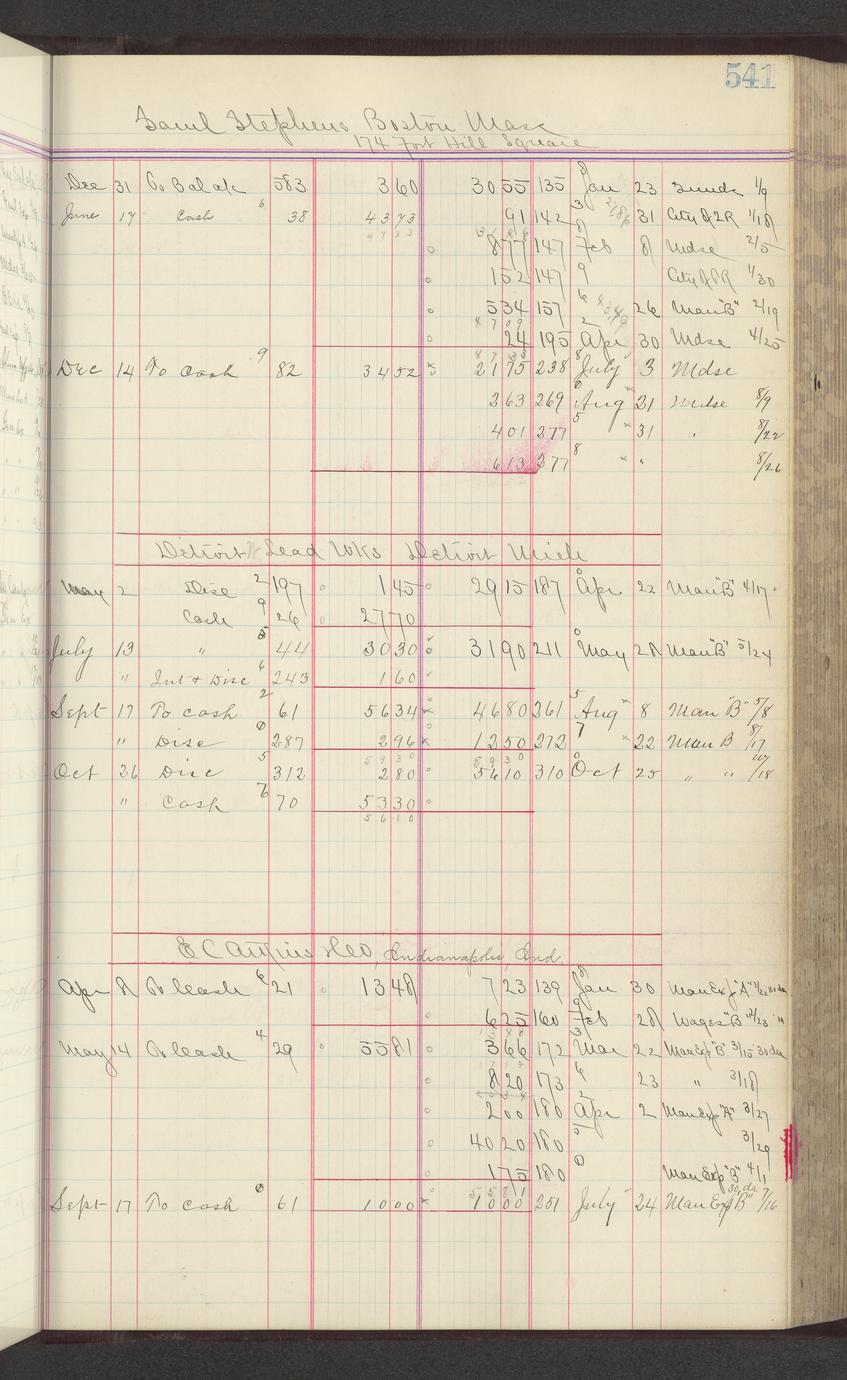 541
Saml Stephens, Boston Mass
174 Fort Hill Square
Dec 31 To Balance 583 360 3055 135 Jan 23 1/9
June 17 Cash 6 38 4373 91 142 3 31 City of 1/18
4733
877 147 8 Feb 8 Mdse 2/5
152 147 9 City of 1/30
534 157 6 26 Man "B" 2/19
4709
24 195 2 Apr 30 Mdse 4/25
4733
Dec 14 To Cash 9 82 3452 2175 238 8 July 3 Mdse
263 269 6 Aug 21 Mdse 8/9
401 277 5 " 31 " 8/22
613 277 8 " " 8/26
Detroit Lead Wks Detroit Mich
May 2 Disc 2 197 145 2915 187 0 Apr 22 Man "B" 4/17
Cash 9 26 2770
July 13 " 5 44 3030 3190 211 0 May 28 Man "B" 5/24
" Int & Disc 6 243 160
Sept 17 To cash 2 61 5634 4680 261 5 Aug 8 Man "B" 5/8
" Disc 0 287 296 1250 272 7 " 22 Man B 8/17
5930 5930
Oct 26 Disc 5 312 280 5610 310 0 Oct 25 " " 10/18
" Cash 6 70 5330
5610
E C Atkins & Co, Indianapolis, Ind.
Apr 8 To Cash 6 21 1348 723 139 8 Jan 30 Man Exp "A" 1/22 30 da
625 160 9 Feb 28 Wages "B" 2/23 "
1348
May 14 To Cash 4 29 5581 366 172 3 Mar 22 Man Exp "B" 3/15 30 da
820 173 6 23 " 3/18
200 180 2 Apr 2 Man Exp "A" 3/27
4020 180 5 3/29
175 180 0 Man Exp "B" 4/1
5581
Sept 17 To Cash 0 61 1000 1000 251 July 24 Man Exp "B" 30 da 7/16